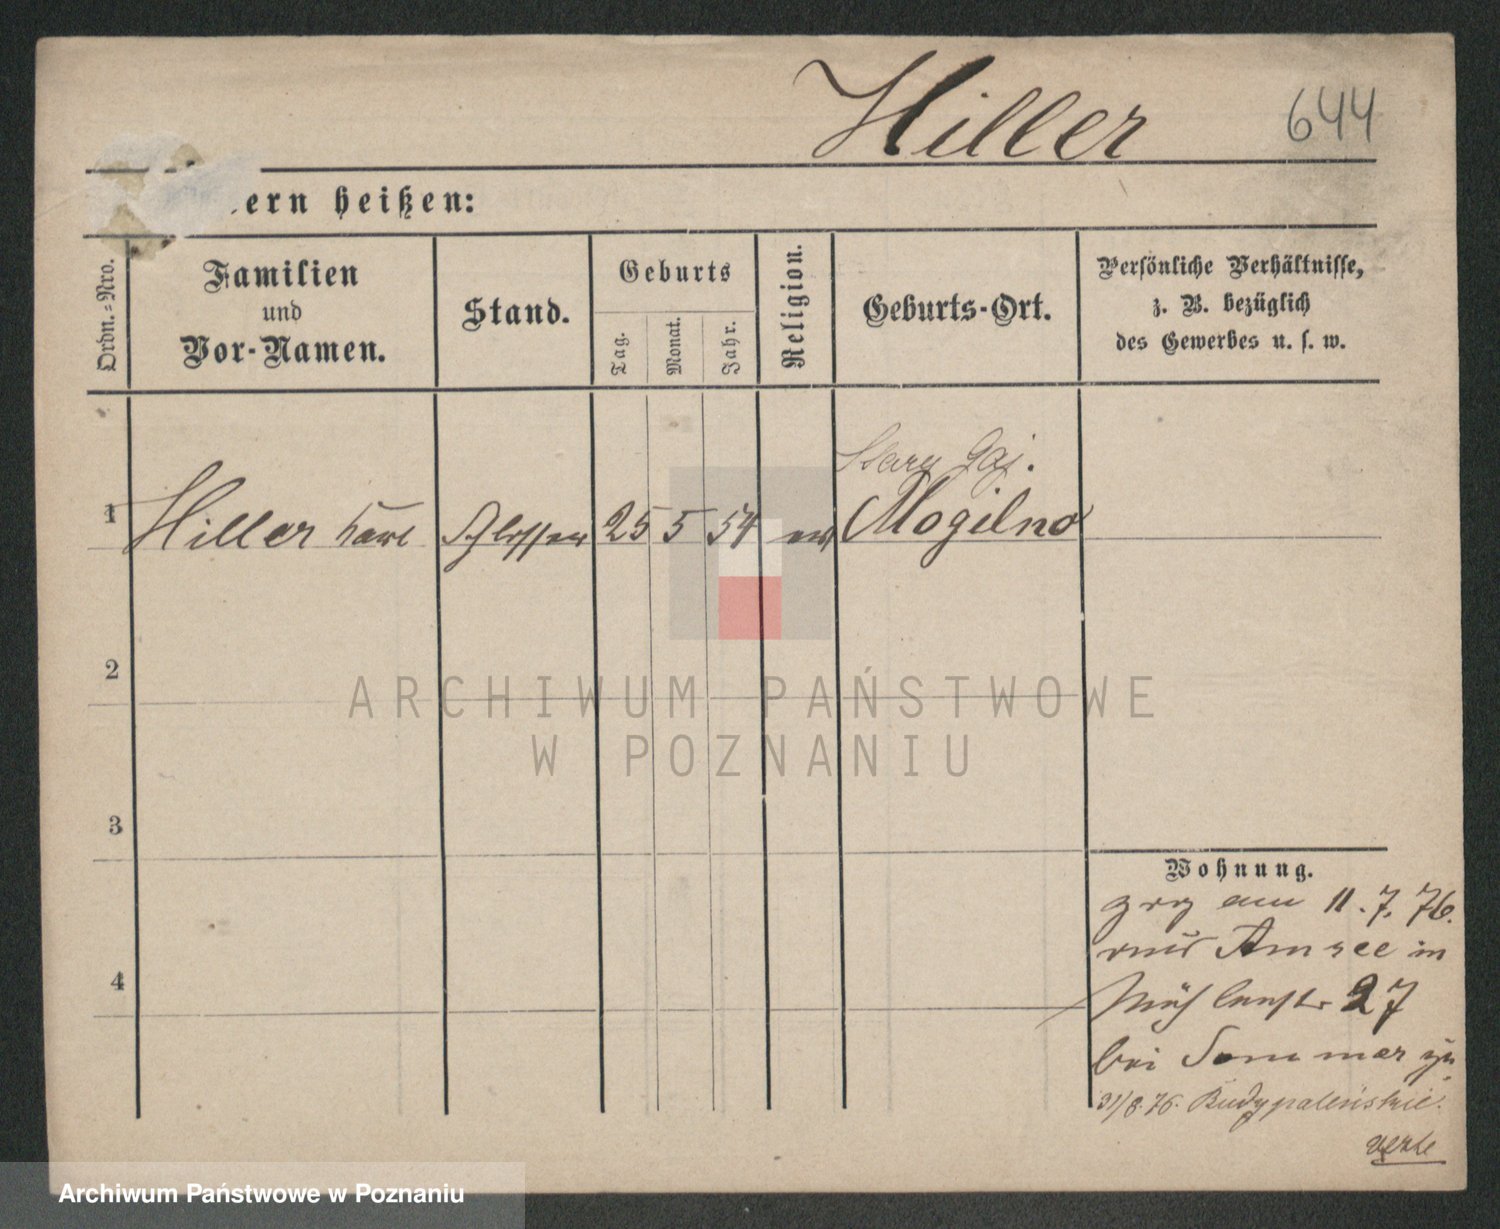 Hiller 644
ern heißen:
Ordn.=Nro.
Familien
und
Vor-Namen.
Stand.
Geburts
Tag.
Monat.
Jahr.
Religion.
Geburts-Ort.
Persönliche Verhältnisse,
z. B. bezüglich
des Gewerbes u. s. w.
Stary Gaj.
1 Hiller Karl Schlosser 25 5 54 ev Mogilno
2
ARCHIWUM PAŃSTWOWE
W POZNANIU
3
Wohnung.
zog am 11. 7. 76.
aus Amsee in
Mühlenstr 27
bei Sommer zu
31/8.76. Budypaleńskie.
4
Archiwum Państwowe w Poznaniu